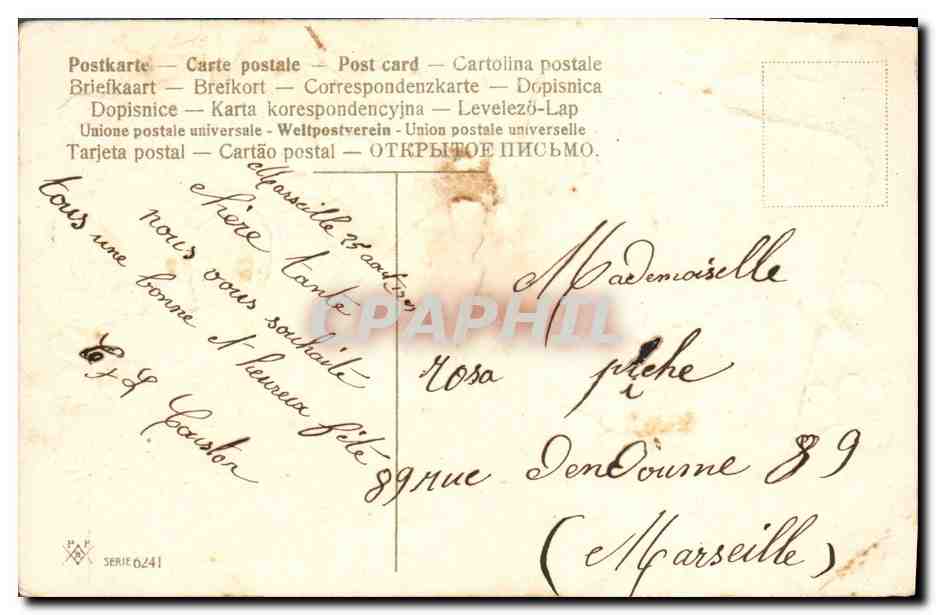 Postkarte — Carte postale — Post card — Cartolina postale
Briefkaart — Brefkort — Correspondenzkarte — Dopisnica
Dopisnice — Karta korespondencyjna — Levelező-Lap
Unione postale universale - Weltpostverein - Union postale universelle
Tarjeta postal — Cartão postal — ОТКРЫТОЕ ПИСЬМО.
Marseille 25 aout
chère tante
nous vous souhaite
tous une bonne et heureux fête
Mademoiselle
rosa piche
89 rue Dendoume 89
(Marseille)
CPAPHIL
SERIE 6241